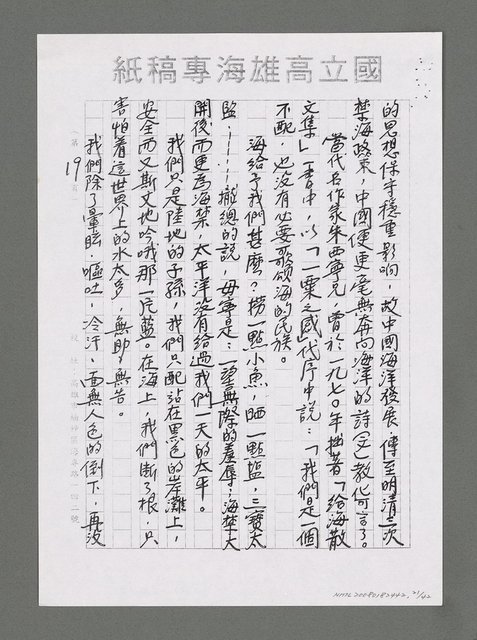 國立高雄海專稿紙
的思想保守穩重影响，故中國海洋發展傳至明清三次
禁海政策，中國便更毫無奔向海洋的詩(文)教化可言了。
當代名作家朱西寧兄，曾於一九七〇年拙著「給海散
文集」一書中，以「一粟之感」代序中說：「我們是一個
不配，也沒有必要歌頌海的民族。
海給了我們甚麼？撈一點小魚，晒一點塩，三寶太
監……攏總的說，毋寧是：一望無際的羞辱；海禁大
開後而更為海禁，太平洋沒有給過我們一天的太平。
我們只是陸地的子孫，我們只配站在黑色的岸灘上，
安全而又斯文地吟哦那一片藍。在海上，我們斷了根，只
害怕着這世界上的水太多，無助，無告。
我們除了暈眩，嘔吐，冷汗，面無人色的倒下，再沒
第19頁
NMTL20080182442, 21/42